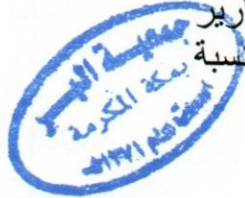 ارير
سبة
جمعية البر
بمكة المكرمة
عام ١٣٧١هـ